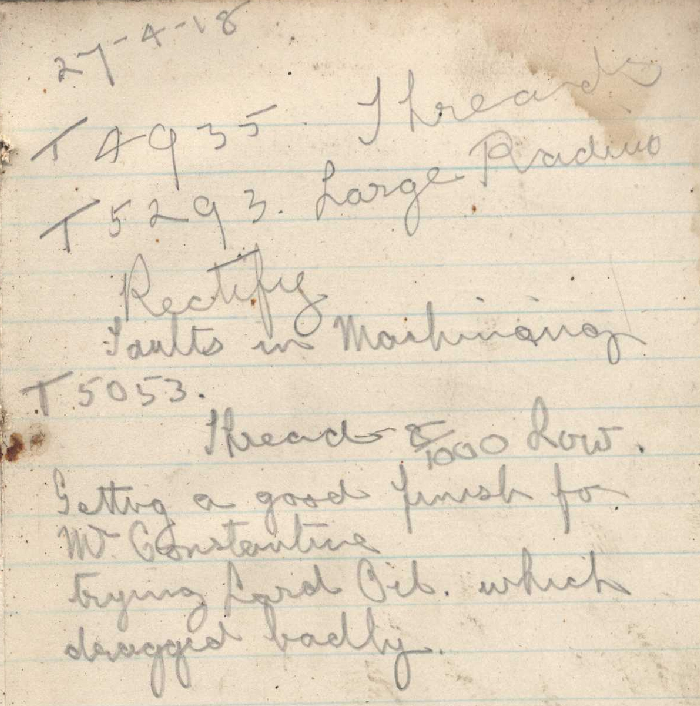 27-4-18
T 4935. Threads
T 5293. Large Radius
Rectify
Faults in Machining
T 5053.
Thread 5/1000 Low.
Getting a good finish for
Mr Constantine
trying Lard Oil. which
dragged badly.